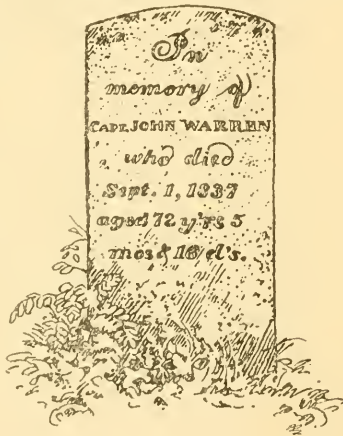 In
memory of
CAPT. JOHN WARREN
who died
Sept. 1, 1837
aged 72 y'rs 5
mos & 18 d's.